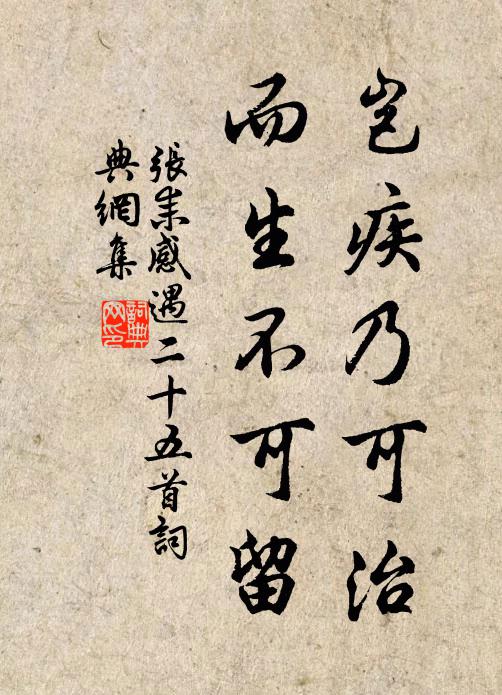 岂疾乃可治
而生不可留
張耒感遇二十五首詞
典網集
詞典網印